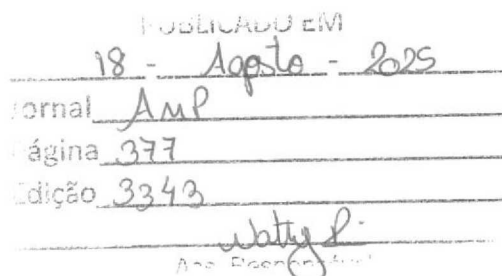 PUBLICADO EM
18 - Agosto - 2025
Jornal AMP
Página 377
Edição 3343
Ass. Responsável